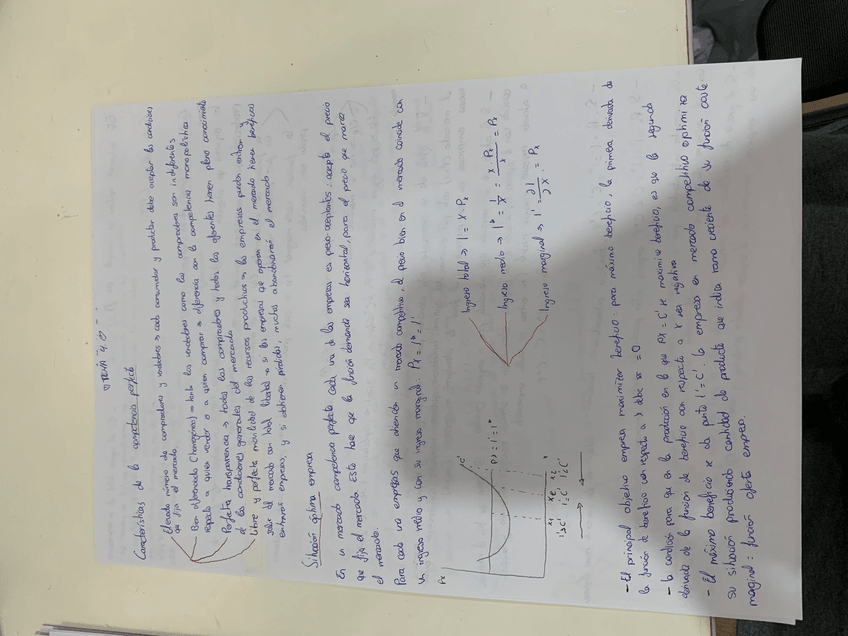 TEMA 4.
Características de la competencia perfecta
Elevado número de compradores y vendedores → cada consumidor y productor debe aceptar las condiciones
que fija el mercado
Bien diferenciado (homogéneo) → tanto los vendedores como los compradores son indiferentes
respecto a quien vender o a quien comprar → diferencia con la competencia monopolística
Perfecta transparencia → todos los compradores y todos los oferentes tienen pleno conocimiento
de las condiciones generales del mercado
Libre y perfecta movilidad de los recursos productivos → las empresas pueden entrar y
salir el mercado con total libertad → si las empresas que operan en el mercado tienen beneficios
entraran empresas, y si obtienen pérdidas, muchas abandonaran el mercado
Situación óptima empresa
En un mercado competencia perfecta cada una de las empresas es precio-aceptantes: acepta el precio
que fija el mercado. Este hace que la función demanda sea horizontal, para el precio que marca
el mercado.
Para cada una empresas que ofrecen un mercado competitivo, el precio bien en el mercado coincide con
un ingreso medio y con su ingreso marginal. Px = I* = I'
Px
C'
Px = I' = I*
x1 xe x2
I'>C' I'=C' I'<C'
Ingreso total → I = X · Px
Ingreso medio → I* = I/X = X·Px/X = Px
Ingreso marginal → I' = ∂I/∂X = Px
- El principal objetivo empresa maximizar beneficio: para máximo beneficio, la primera derivada de
la función de beneficio con respecto a x debe se = 0
- La condición para que en la producción en la que Px = C' se maximice beneficio, es que la segunda
derivada de la función de beneficio con respecto a x sea negativa
- El máximo beneficio se da punto I' = C'. La empresa en mercado competitivo optimiza
su situación produciendo cantidad de producto que indica ramo creciente de su función coste
marginal: función oferta empresa.